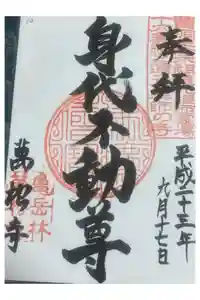 奉拝
平成二十三年
九月十七日
身代不動尊
亀岳林
萬松寺